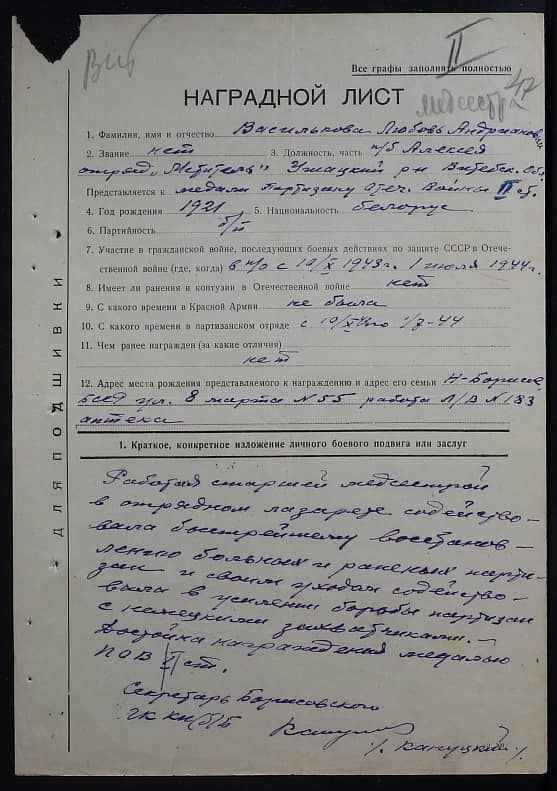 Виб
II
Все графы заполнять полностью
47
медсестра
НАГРАДНОЙ ЛИСТ
1. Фамилия, имя и отчество Василькова Любовь Андриановна
2. Звание нет 3. Должность, часть п/б Алексея
отряд „Мститель" Ушацкий р-н Витебск. Об.
Представляется к медали Партизану Отеч. Войны II ст.
4. Год рождения 1921 5. Национальность белорус
6. Партийность б/п
7. Участие в гражданской войне, последующих боевых действиях по защите СССР в Отече-
ственной войне (где, когда) в п/о с 10/X 1943г. 1 июля 1944г.
8. Имеет ли ранения и контузии в Отечественной войне нет
9. С какого времени в Красной Армии не была
10. С какого времени в партизанском отряде с 10/X
11. Чем ранее награжден (за какие отличия)
нет
12. Адрес места рождения представляемого к награждению и адрес его семьи Н-Борисов,
ул. 8 марта N 55 работа Л/В N 183
аптека
1. Краткое, конкретное изложение личного боевого подвига или заслуг
Работая старшей медсестрой
в отрядном лазарете содейство-
вала быстрейшему восстанов-
лению больных и раненых парти-
зан и своим уходом содейство-
вала в усилении борьбы партизан
с немецкими захватчиками.-
Достойна награждения медалью
ПОВ II ст.
Секретарь Борисовского
ГК КП/б/Б
/. Капуцкий ./.
ДЛЯ ПОДШИВКИ